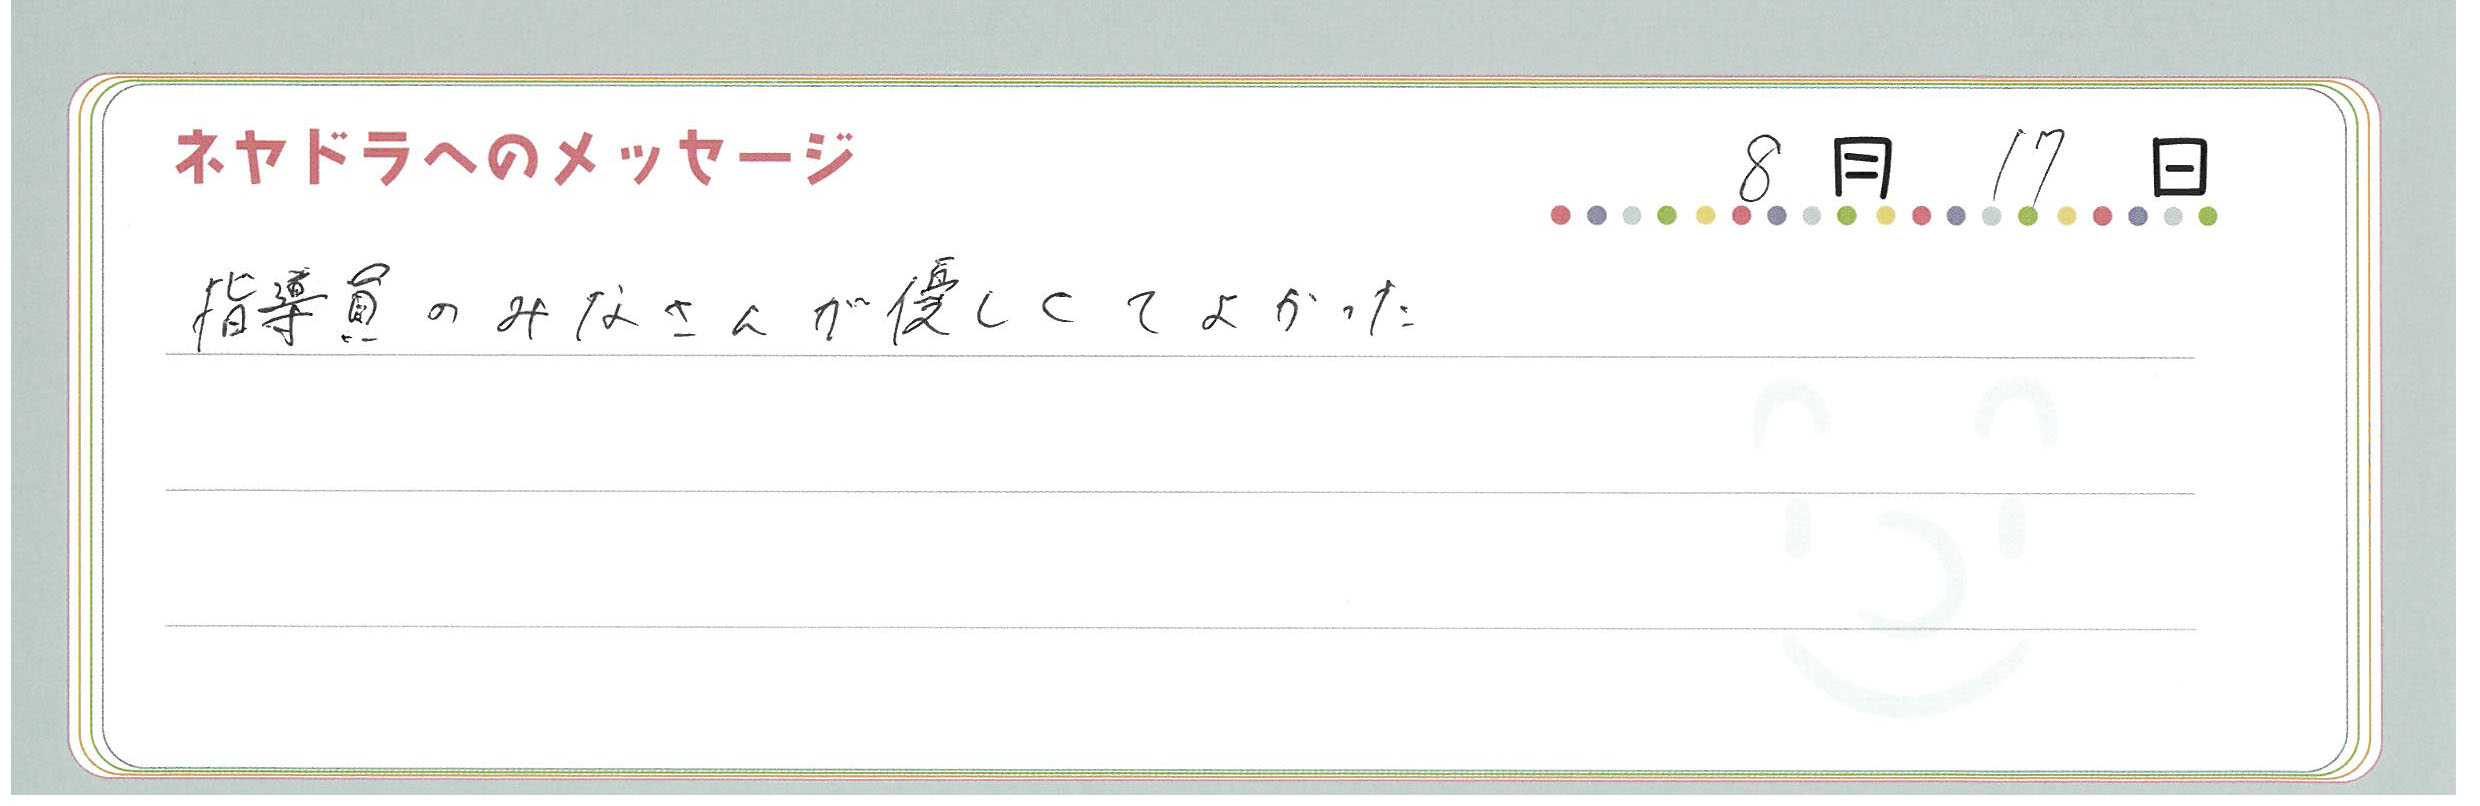 ネヤドラへのメッセージ
8月17日
指導員のみなさんが優しくてよかった